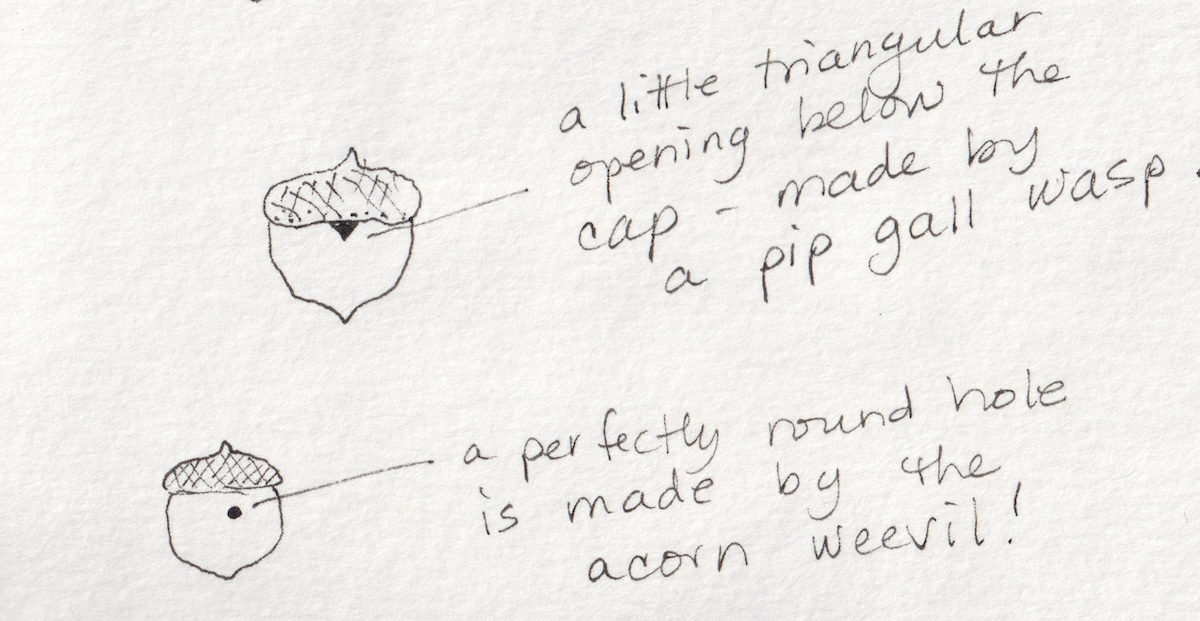 a little triangular
opening below the
cap - made by
a pip gall wasp.
a perfectly round hole
is made by the
acorn weevil!